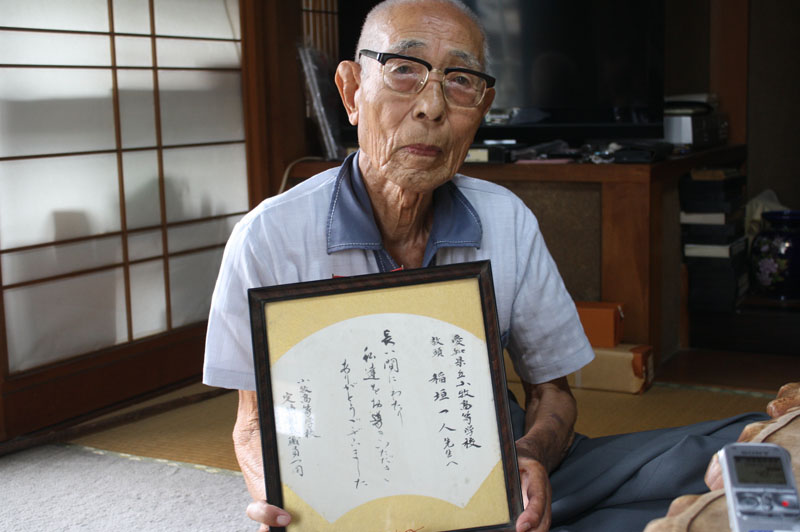 愛知県立小牧高等学校
教頭 稲垣一人先生へ
長い間にわたり
私達を指導いただき
ありがとうございました
小牧高等学校
定 職員一同
SONY